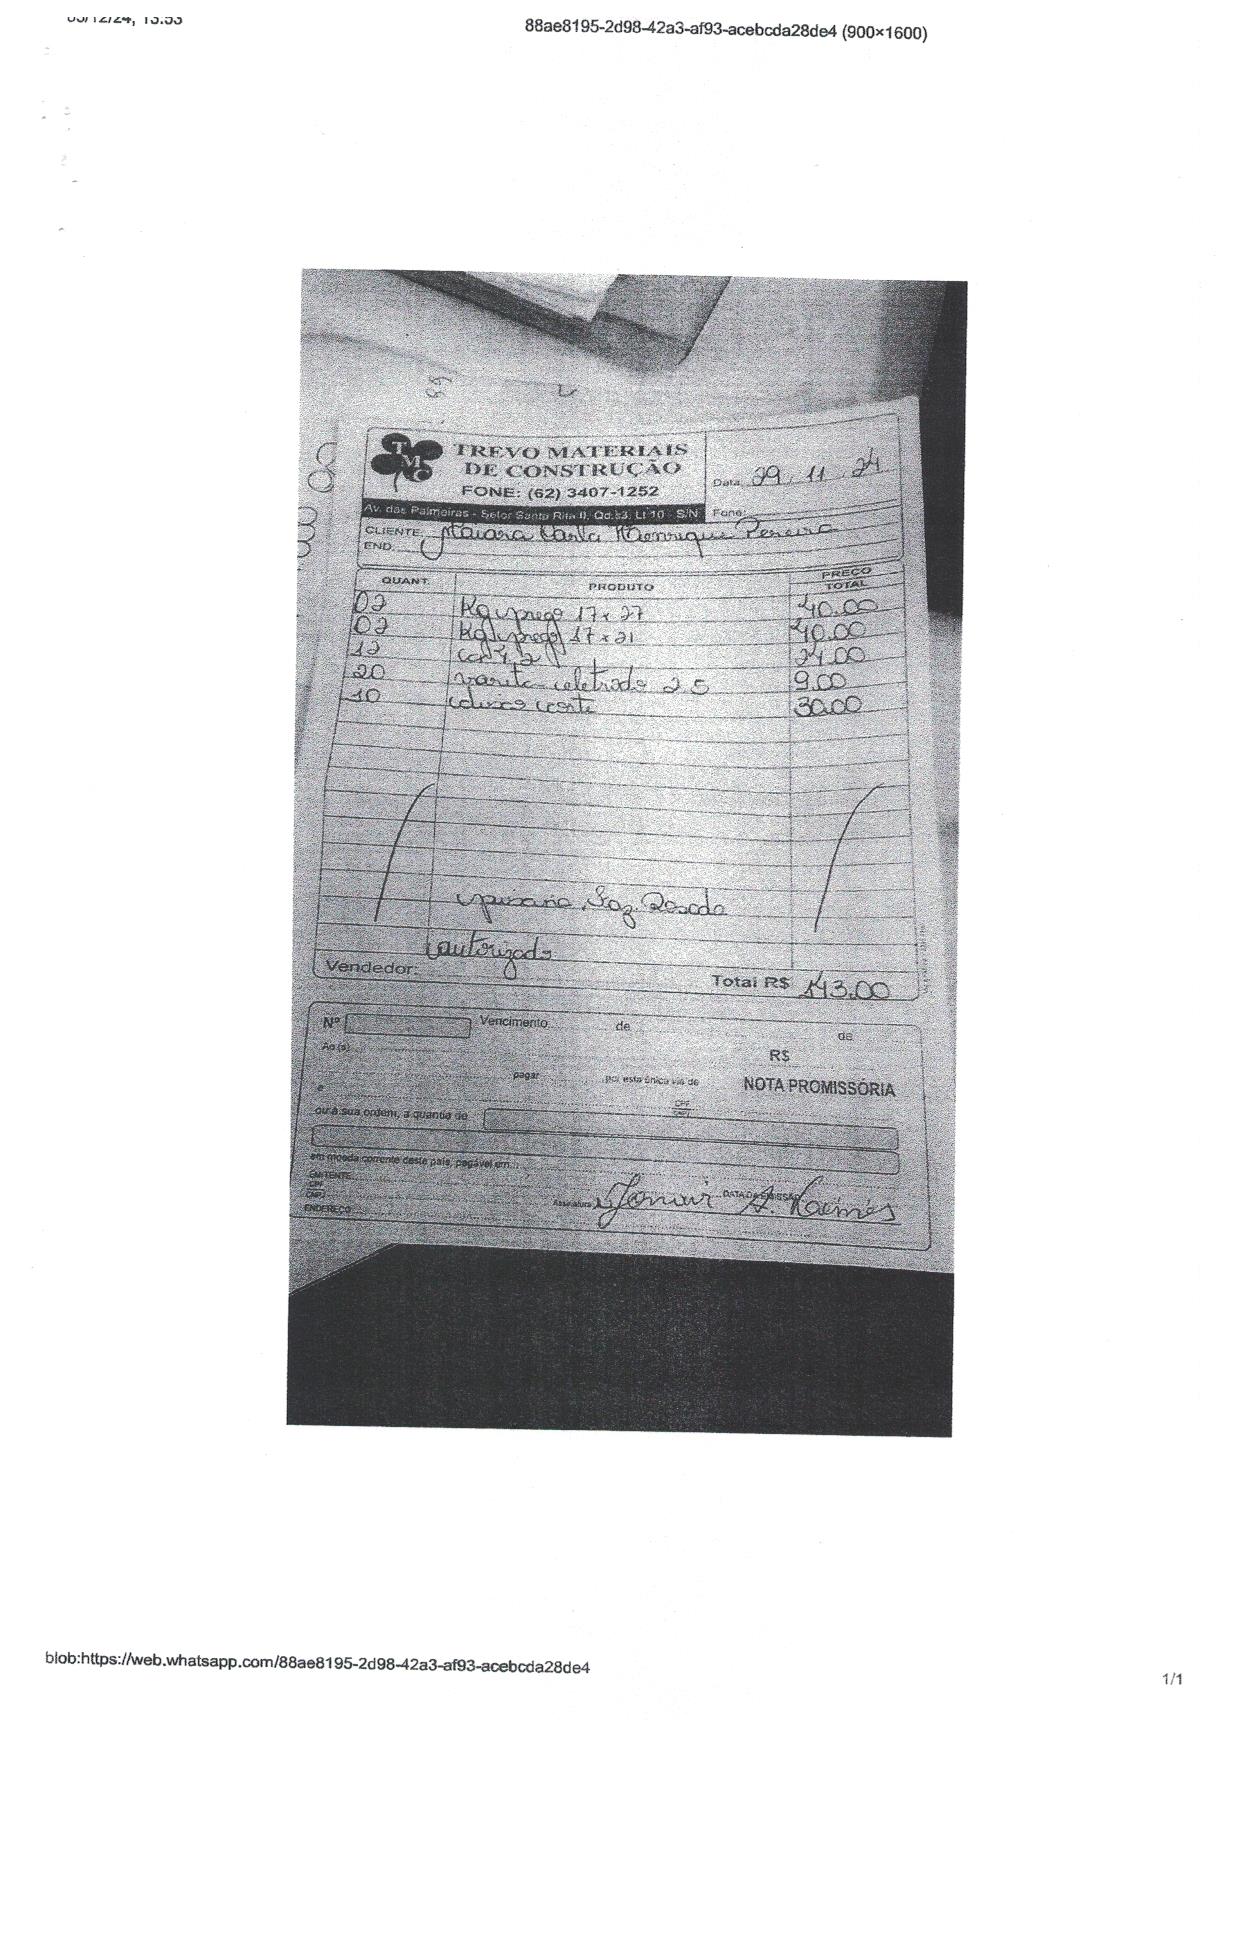 88ae8195-2d98-42a3-af93-acebcda28de4 (900×1600)
TMC
TREVO MATERIAIS
DE CONSTRUÇÃO
FONE: (62) 3407-1252
Data 29 . 11 . 24
Av. das Palmeiras - Setor Santa Rita II, Qd.53, Lt 10 - S/N
Fone:
CLIENTE Henrique Pereira
END.
QUANT. PRODUTO PREÇO TOTAL
02 Kg prego 17 x 27 40.00
02 Kg prego 17 x 21 40.00
12 24.00
20 vareta eletrodo 2 5 9.00
10 disco corte 30.00
Faz. Rosada
autorizado
Vendedor:
Total R$ 143.00
Nº Vencimento de de
Ao(s) R$
pagar por esta única via de NOTA PROMISSÓRIA
e CPF
CNPJ
ou à sua ordem, a quantia de
em moeda corrente deste país, pagável em
EMITENTE
CPF
CNPJ DATA DA EMISSÃO
Assinatura
ENDEREÇO
blob:https://web.whatsapp.com/88ae8195-2d98-42a3-af93-acebcda28de4
1/1